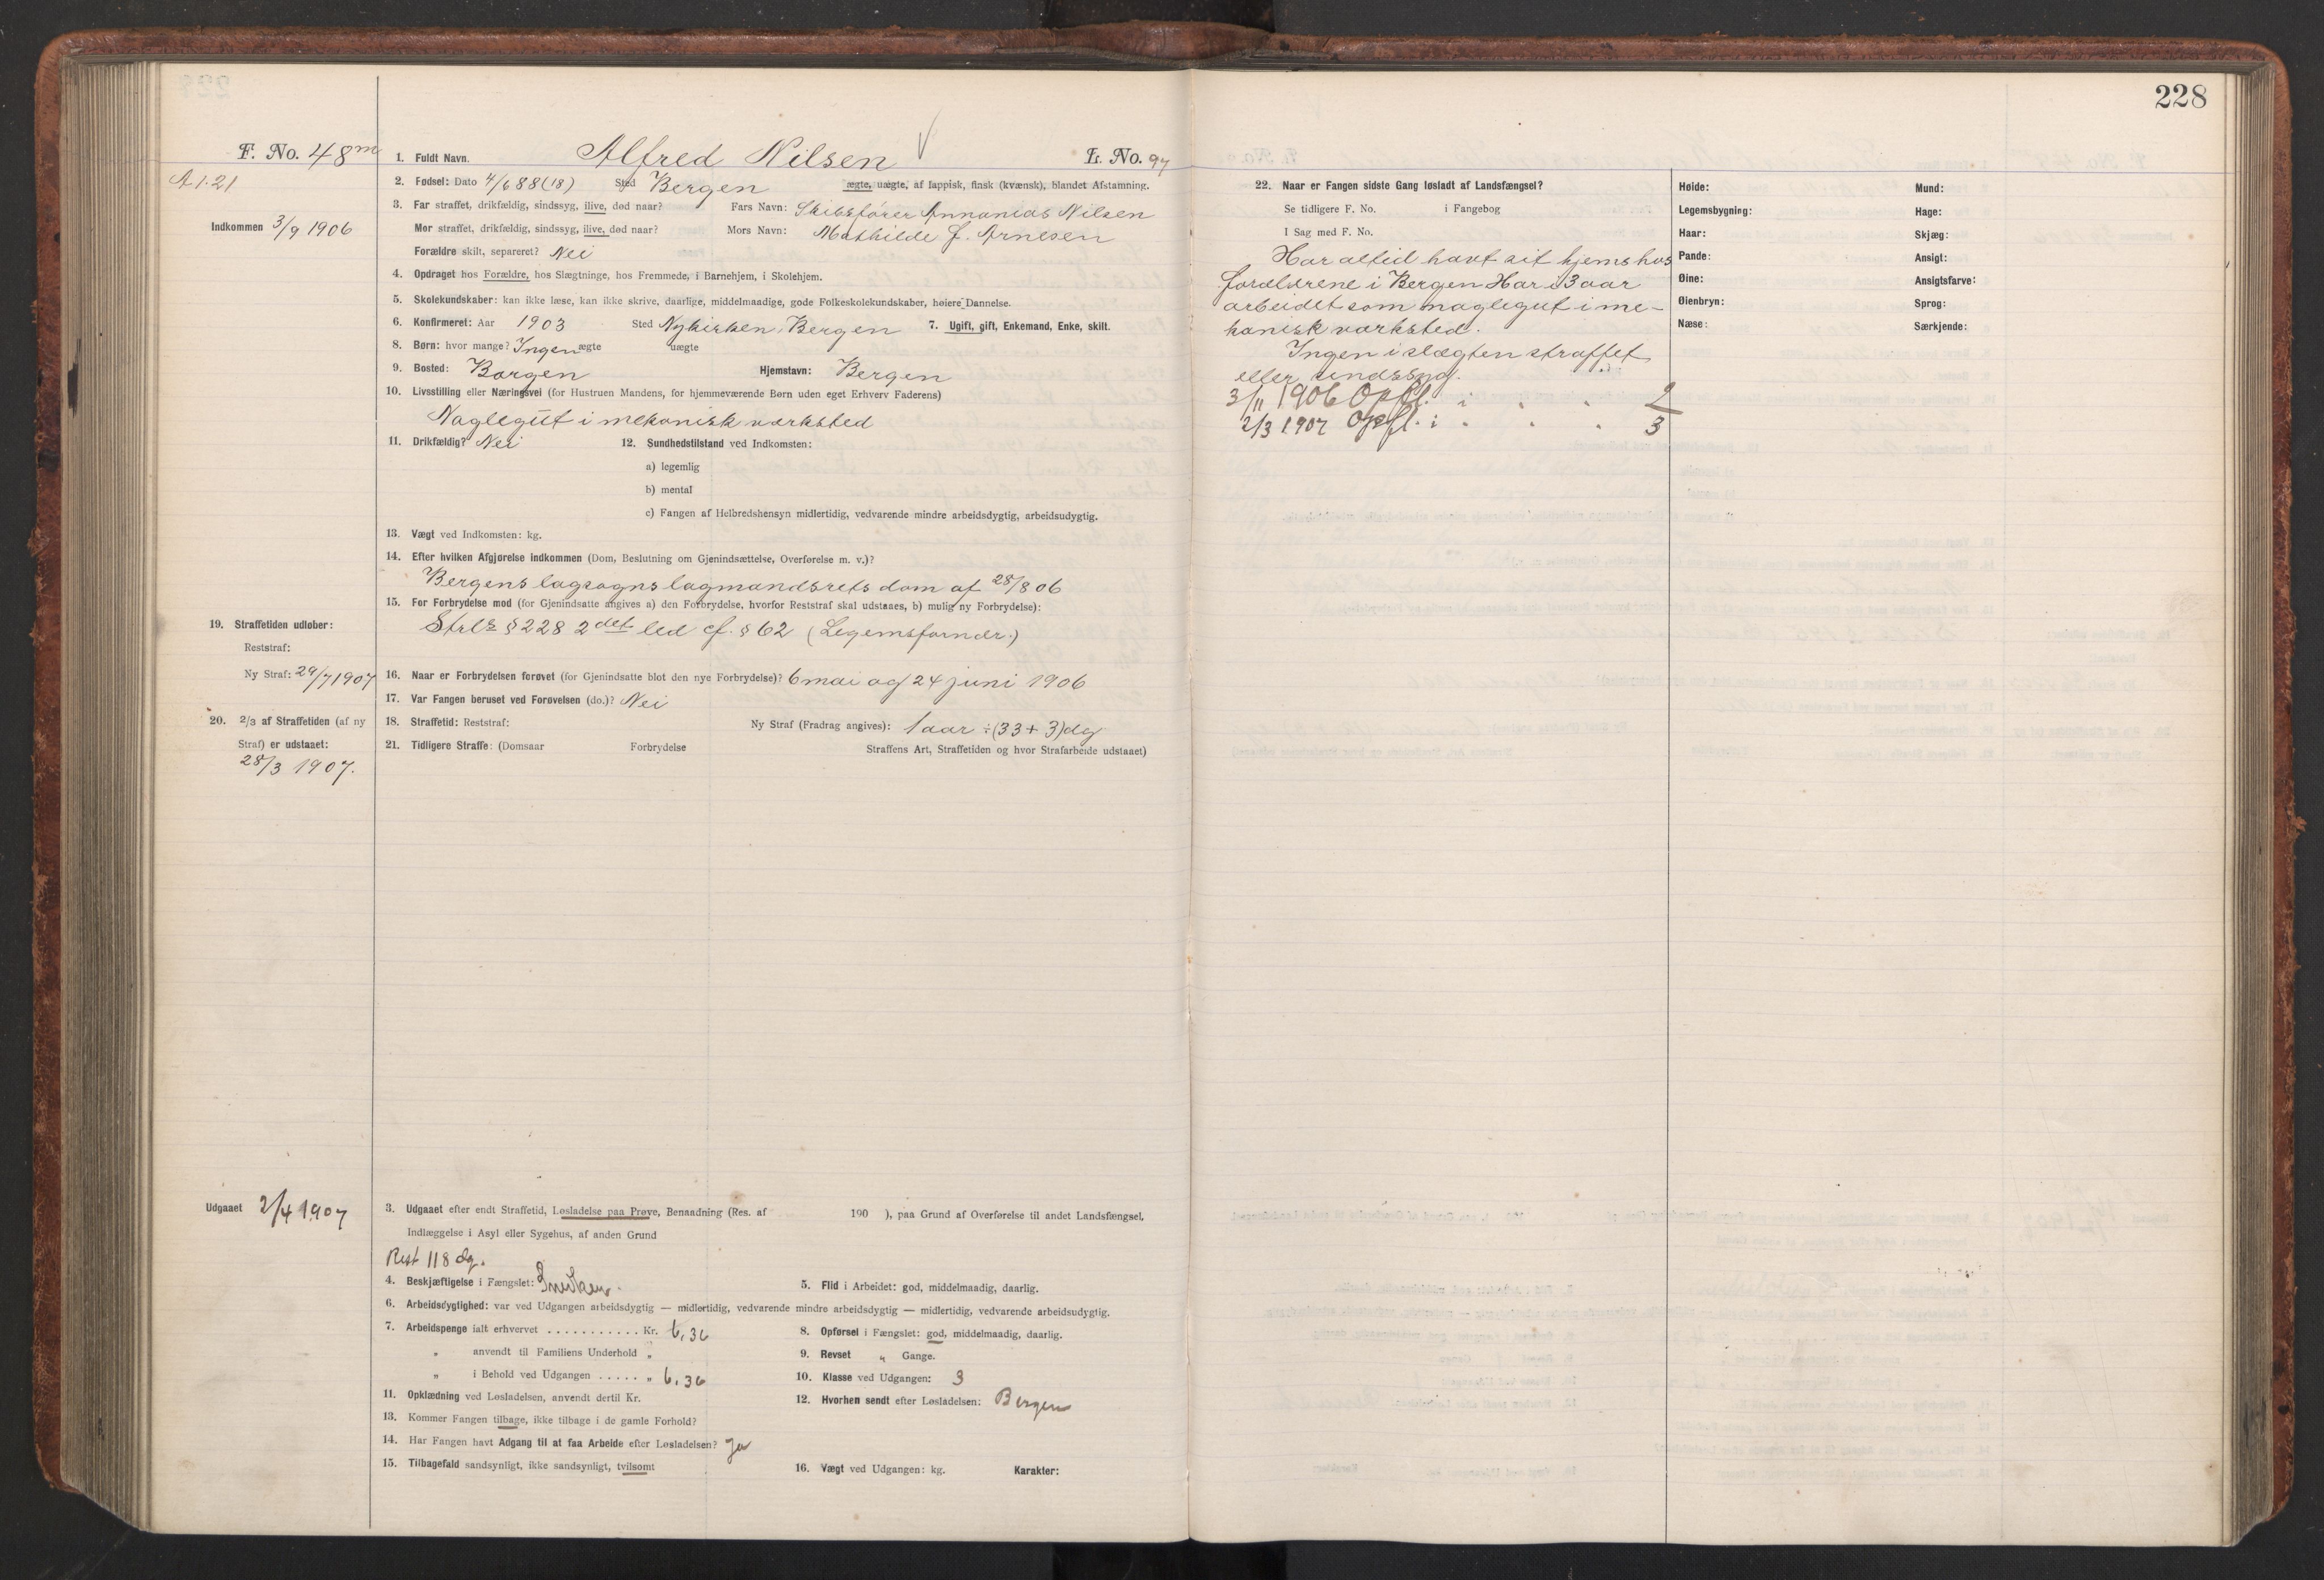 228
F. No. 48 m
1. Fuldt Navn. Alfred Nilsen
L. No. 97
A 1.21
2. Fødsel: Dato 4/6 88 (18) Sted Bergen ægte, uægte, af lappisk, finsk (kvænsk), blandet Afstamning.
Indkommen 3/9 1906
3. Far straffet, drikfældig, sindssyg, ilive, død naar? Fars Navn: Skibsfører Annanias Nilsen
Mor straffet, drikfældig, sindssyg, ilive, død naar? Mors Navn: Mathilde f. Arnesen
Forældre skilt, separeret? Nei
4. Opdraget hos Forældre, hos Slægtninge, hos Fremmede, i Barnehjem, i Skolehjem.
5. Skolekundskaber: kan ikke læse, kan ikke skrive, daarlige, middelmaadige, gode Folkeskolekundskaber, høiere Dannelse.
6. Konfirmeret: Aar 1903 Sted Nykirken, Bergen 7. Ugift, gift, Enkemand, Enke, skilt.
8. Børn: hvor mange? Ingen ægte uægte
9. Bosted: Bergen Hjemstavn: Bergen
10. Livsstilling eller Næringsvei (for Hustruen Mandens, for hjemmeværende Børn uden eget Erhverv Faderens)
Naglegut i mekanisk værksted
11. Drikfældig? Nei 12. Sundhedstilstand ved Indkomsten:
a) legemlig
b) mental
c) Fangen af Helbredshensyn midlertidig, vedvarende mindre arbeidsdygtig, arbeidsudygtig.
13. Vægt ved Indkomsten: kg.
14. Efter hvilken Afgjørelse indkommen (Dom, Beslutning om Gjenindsættelse, Overførelse m. v.)?
Bergens lagsogns lagmandsrets dom af 28/8 06
15. For Forbrydelse mod (for Gjenindsatte angives a) den Forbrydelse, hvorfor Reststraf skal udstaaes, b) mulig ny Forbrydelse):
Strl § 228 2det led cf. § 62 (Legemsfornær.)
19. Straffetiden udløber:
Reststraf:
Ny Straf: 29/7 1907
16. Naar er Forbrydelsen forøvet (for Gjenindsatte blot den nye Forbrydelse)? 6 mai og 24 juni 1906
17. Var Fangen beruset ved Forøvelsen (do.)? Nei
20. 2/3 af Straffetiden (af ny
Straf) er udstaaet:
28/3 1907.
18. Straffetid: Reststraf: Ny Straf (Fradrag angives): 1 aar ÷ (33 + 3) dg
21. Tidligere Straffe: (Domsaar Forbrydelse Straffens Art, Straffetiden og hvor Strafarbeide udstaaet)
Udgaaet 2/4 1907
3. Udgaaet efter endt Straffetid, Løsladelse paa Prøve, Benaadning (Res. af 190 ), paa Grund af Overførelse til andet Landsfængsel,
Indlæggelse i Asyl eller Sygehus, af anden Grund
Rest 118 dg.
4. Beskjæftigelse i Fængslet: Snedker. 5. Flid i Arbeidet: god, middelmaadig, daarlig.
6. Arbeidsdygtighed: var ved Udgangen arbeidsdygtig — midlertidig, vedvarende mindre arbeidsdygtig — midlertidig, vedvarende arbeidsudygtig.
7. Arbeidspenge ialt erhvervet . . . . . . . . . . . Kr. 6,36 8. Opførsel i Fængslet: god, middelmaadig, daarlig.
„ anvendt til Familiens Underhold „ 9. Revset „ Gange.
„ i Behold ved Udgangen . . . . . „ 6,36 10. Klasse ved Udgangen: 3
11. Opklædning ved Løsladelsen, anvendt dertil Kr. 12. Hvorhen sendt efter Løsladelsen: Bergen
13. Kommer Fangen tilbage, ikke tilbage i de gamle Forhold?
14. Har Fangen havt Adgang til at faa Arbeide efter Løsladelsen? Ja
15. Tilbagefald sandsynligt, ikke sandsynligt, tvilsomt 16. Vægt ved Udgangen: kg. Karakter:
22. Naar er Fangen sidste Gang løsladt af Landsfængsel?
Se tidligere F. No. i Fangebog
I Sag med F. No.
Har altid havt sit hjem hos
forældrene i Bergen. Har i 3 aar
arbeidet som naglegut i me-
kanisk værksted.
Ingen i slægten straffet
eller sindssyg.
3/11 1906 Opfl. i " " 2
2/3 1907 Opfl. i " " 3
Høide: Mund:
Legemsbygning: Hage:
Haar: Skjæg:
Pande: Ansigt:
Øine: Ansigtsfarve:
Øienbryn: Sprog:
Næse: Særkjende: